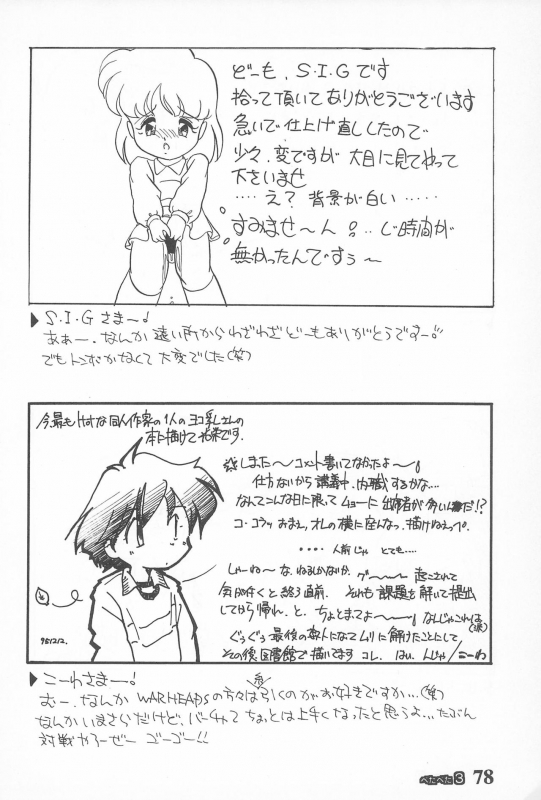 どーも、S・I・Gです
拾って頂いてありがとうございます
急いで仕上げ直ししたので
少々、変ですが 大目に見てやって
下さいませ
‥‥え? 背景が白い‥‥‥
すみませ〜ん じ時間が
無かったんですぅ〜
▶ S・I・Gさま〜!
ああー、なんか遠い所からわざわざどーもありがとうですー!
でもトンボかなくて大変でした(笑)
今最もHな同人作家の1人のヨコ乳さんの
本に描けて光栄です.
しまた〜コメント書いてなかたよ〜!
仕方ないから講義中、内職するかな…
なんてこんな日に限ってムショーに出席者が多いんだ!?
コ・コラッ おまえ、オレの横に座んなっ、描けねぇっぺ
‥‥人前じゃ とても‥‥
しゃーねーな、ねるかなぁ グ〜〜〜 起こされて
気が付くと終り直前. それも課題を解いて提出
してから帰れ、と、ちょとまてよ〜! なんじゃこれは(涙)
その後、図書館で描いてます コレ. はい、んじゃ/こーわ
981212.
▶ こーわさまー!
むー、なんかWARHEADSの方々は引くのがお好きですか…(笑)
なんかいまさらだけど、バーチャてちょっとは上手くなったと思うよ…たぶん
対戦やろーぜー ゴーゴー!!
ぺたぺた3 78